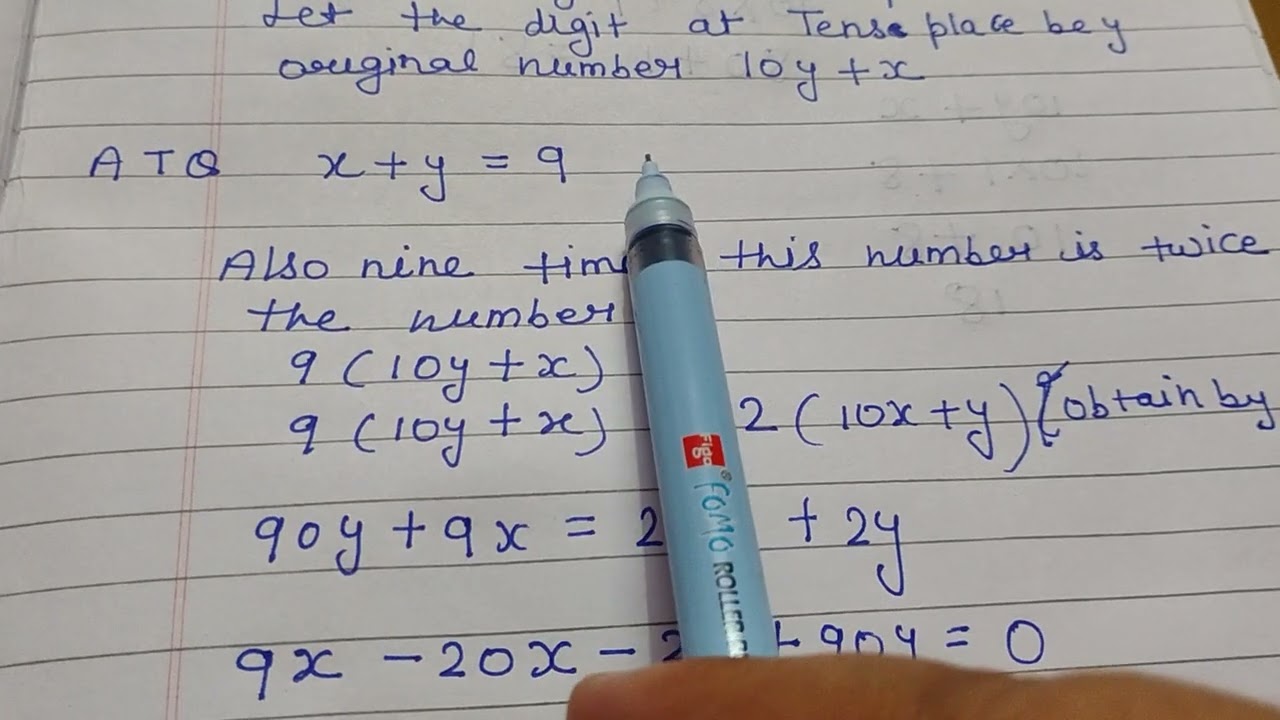 Let the digit at Tense place be y
original number 10y + x
A T Q x + y = 9
Also nine tim this number is twice
the number
9 (10y + x)
9 (10y + x) 2 (10x + y) (obtain by
90y + 9x = 2 + 2y
9x - 20x - 2 + 90y = 0
Figo
FOMO ROLLER
18